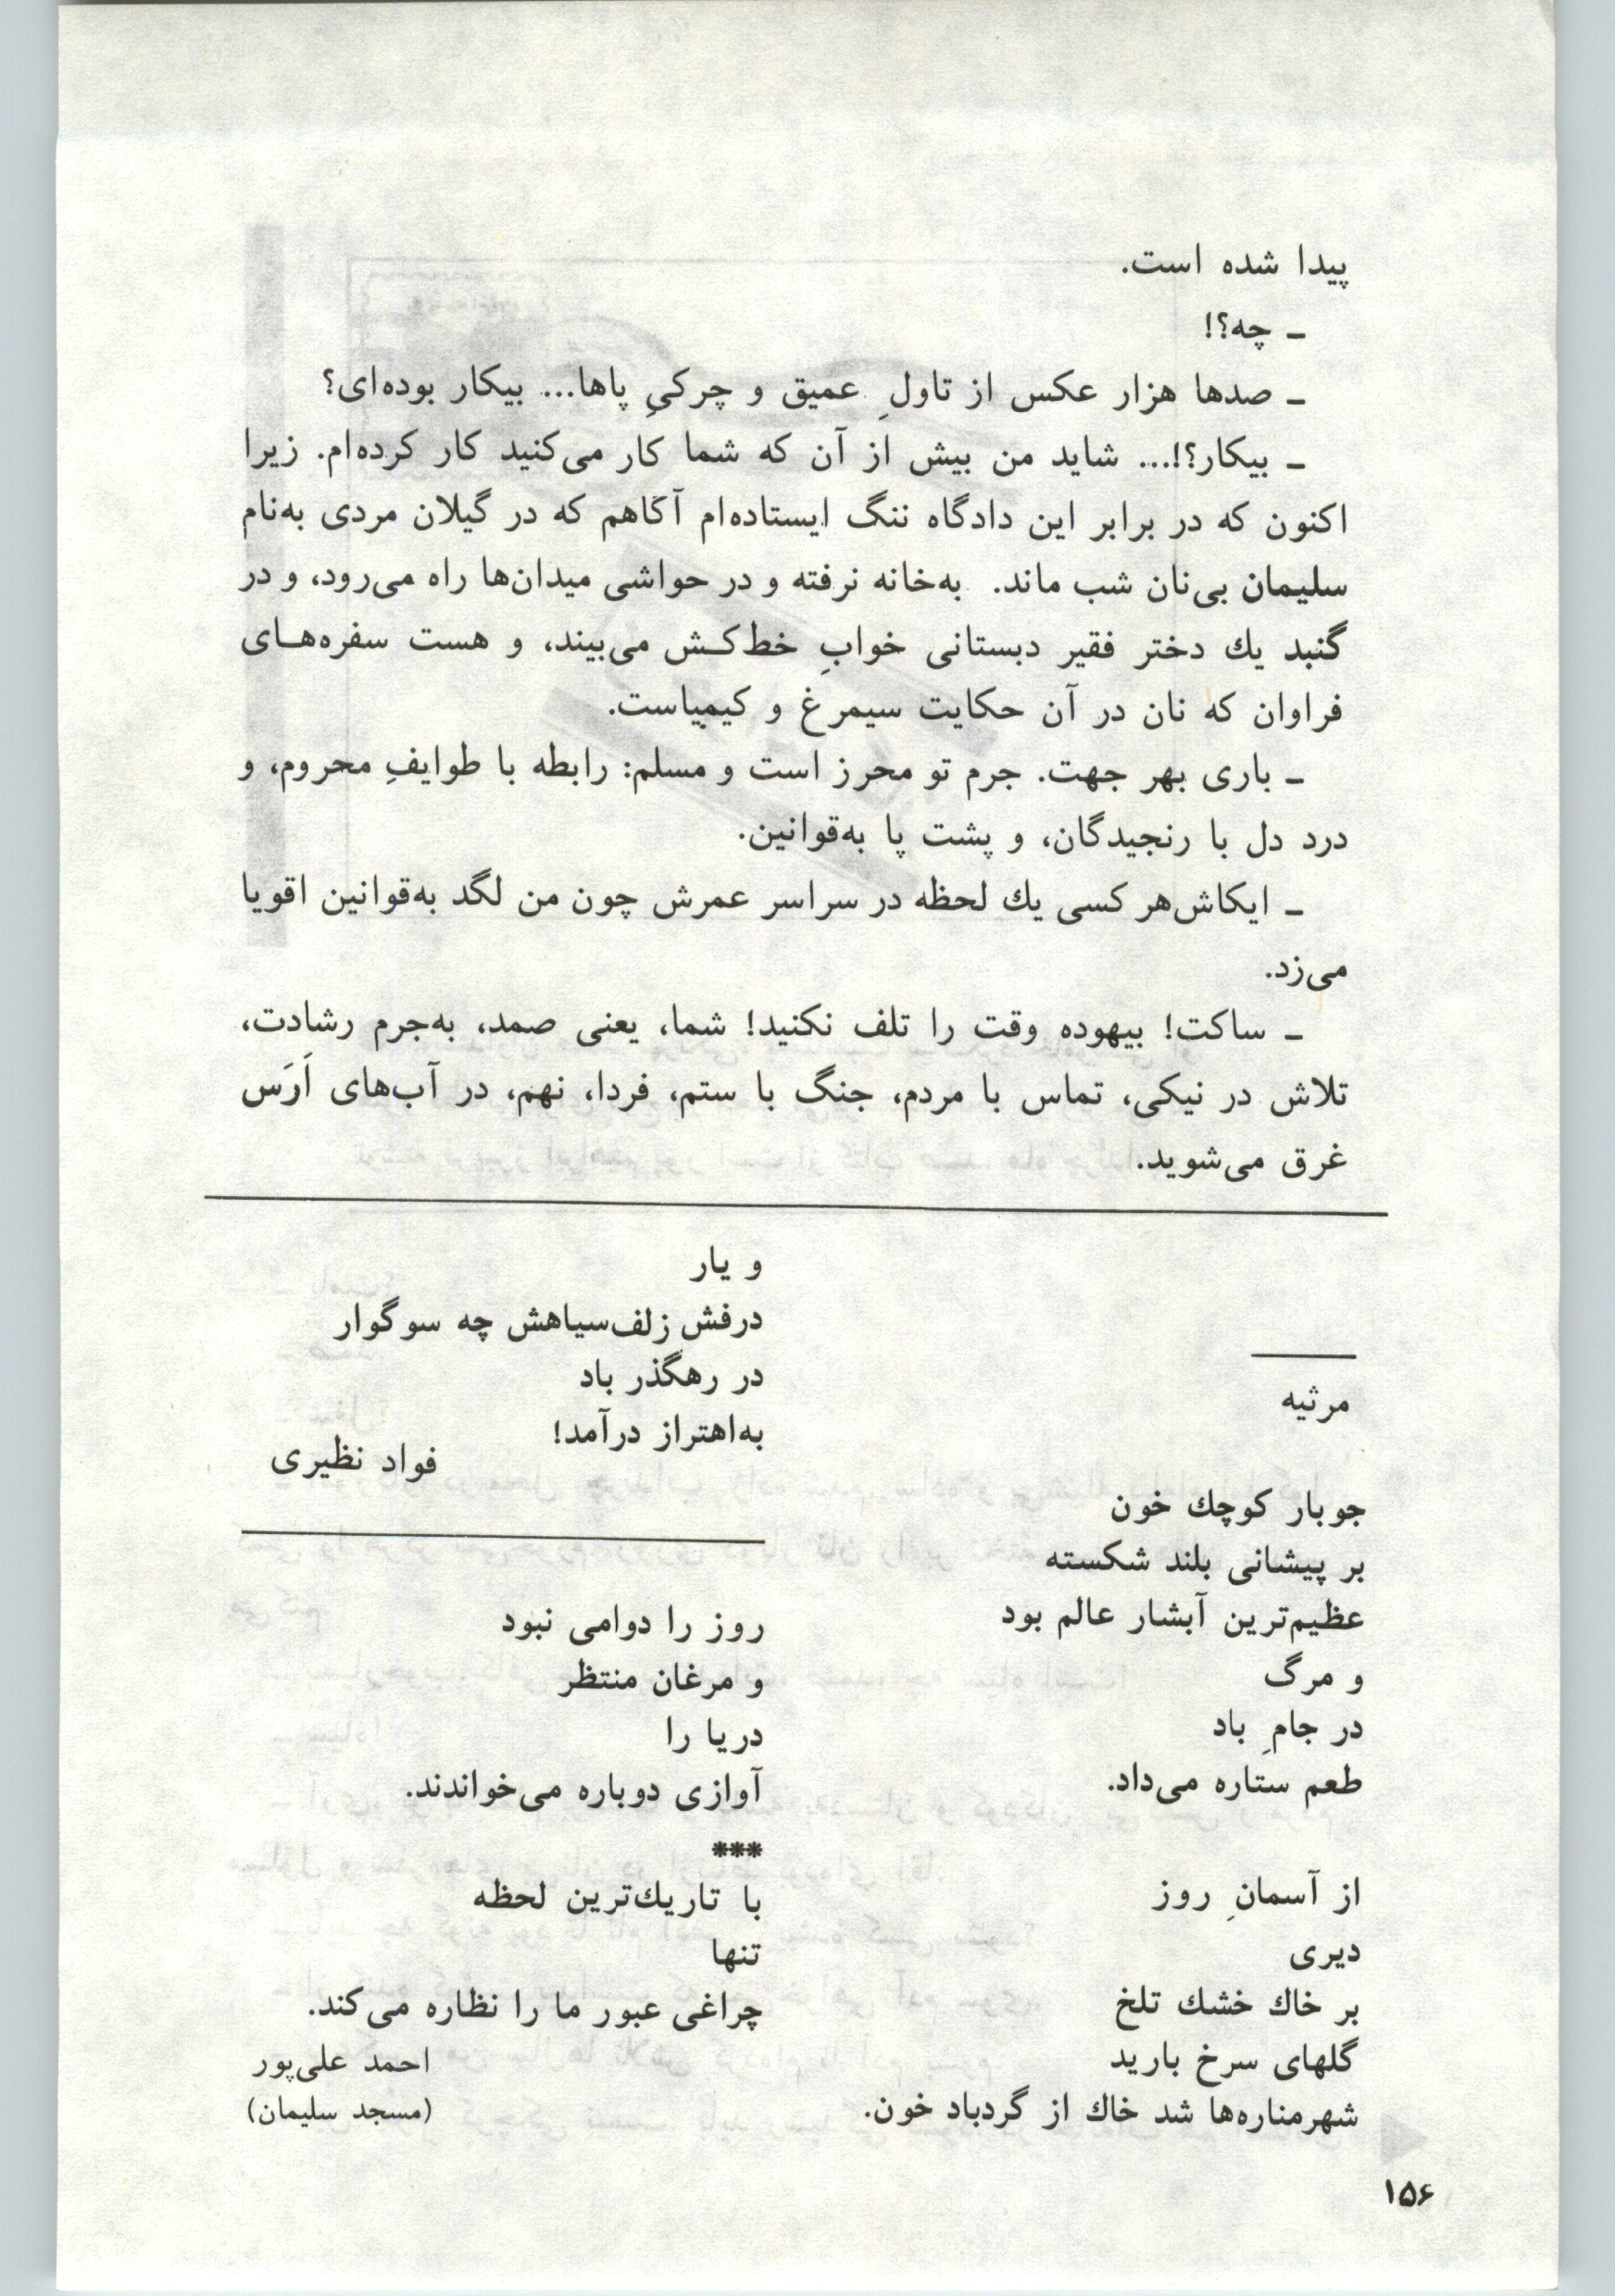 پیدا شده است.
ـ چه؟!
ـ صدها هزار عکس از تاولِ عمیق و چرکیِ پاها... بیکار بوده‌ای؟
ـ بیکار؟!... شاید من بیش از آن که شما کار می‌کنید کار کرده‌ام. زیرا
اکنون که در برابر این دادگاه ننگ ایستاده‌ام آگاهم که در گیلان مردی به‌نام
سلیمان بی‌نان شب ماند. به‌خانه نرفته و در حواشی میدان‌ها راه می‌رود، و در
گنبد یك دختر فقیر دبستانی خوابِ خط‌کـش می‌بیند، و هست سفره‌هـای
فراوان که نان در آن حکایت سیمرغ و کیمیاست.
ـ باری بهر جهت. جرم تو محرز است و مسلم: رابطه با طوایفِ محروم، و
درد دل با رنجیدگان، و پشت پا به‌قوانین.
ـ ایکاش‌هر کسی یك لحظه در سراسر عمرش چون من لگد به‌قوانین اقویا
می‌زد.
ـ ساکت! بیهوده وقت را تلف نکنید! شما، یعنی صمد، به‌جرم رشادت،
تلاش در نیکی، تماس با مردم، جنگ با ستم، فردا، نهم، در آب‌های اَرَس
غرق می‌شوید.
مرثیه
جوبار کوچك خون
بر پیشانی بلند شکسته
عظیم‌ترین آبشار عالم بود
و مرگ
در جامِ باد
طعم ستاره می‌داد.
از آسمانِ روز
دیری
بر خاك خشك تلخ
گلهای سرخ بارید
شهرمناره‌ها شد خاك از گردباد خون.
و یار
درفش زلف‌سیاهش چه سوگوار
در رهگذر باد
به‌اهتراز درآمد!
فواد نظیری
روز را دوامی نبود
و مرغان منتظر
دریا را
آوازی دوباره می‌خواندند.
***
با تاریك‌ترین لحظه
تنها
چراغی عبور ما را نظاره می‌کند.
احمد علی‌پور
(مسجد سلیمان)
۱۵۶